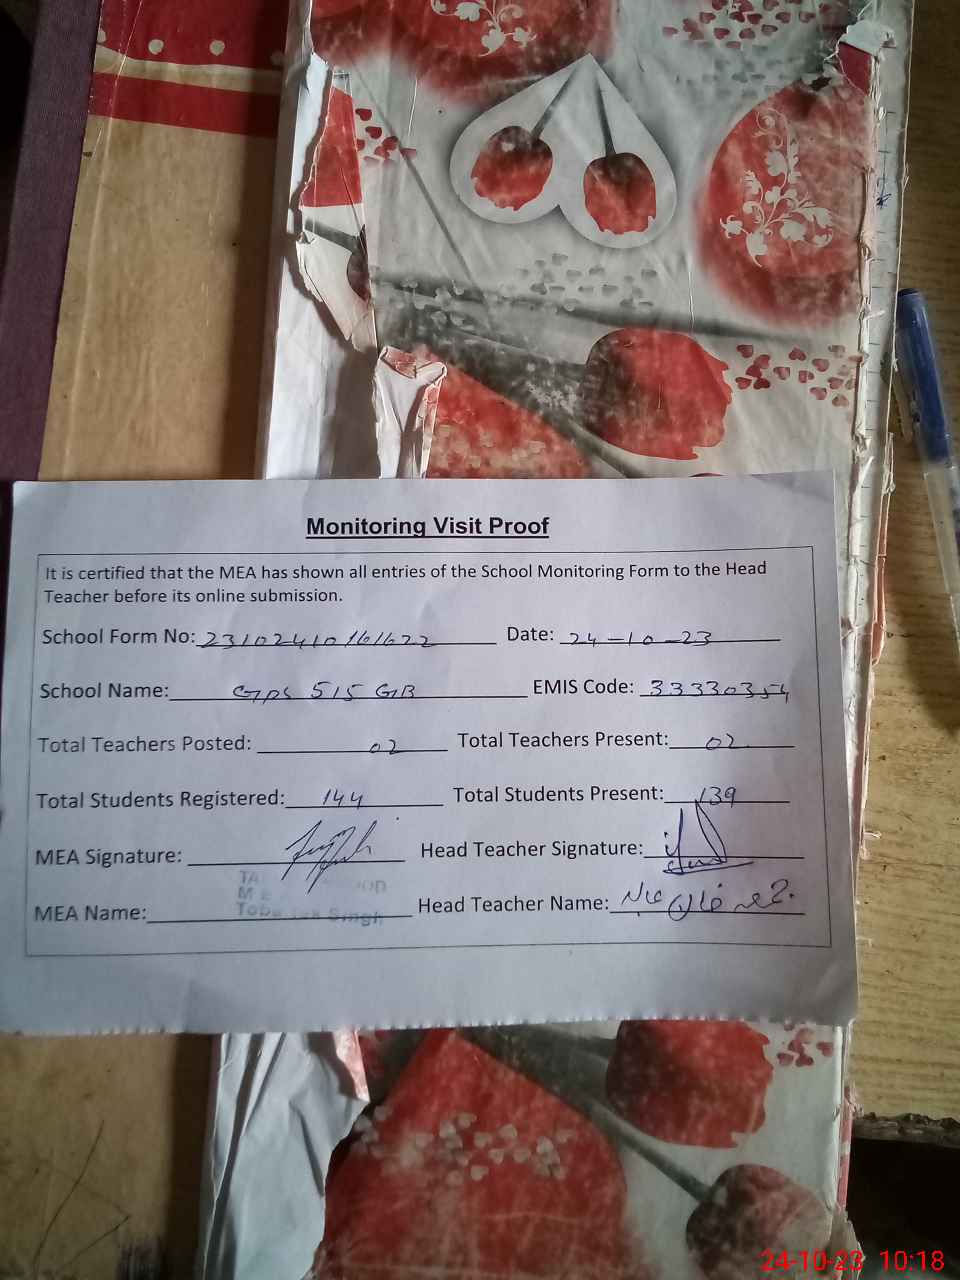 Monitoring Visit Proof
It is certified that the MEA has shown all entries of the School Monitoring Form to the Head
Teacher before its online submission.
School Form No: 23102410161622 Date: 24-10-23
School Name: GPS 515 GB EMIS Code: 33330354
Total Teachers Posted: 02 Total Teachers Present: 02
Total Students Registered: 144 Total Students Present: 139
MEA Signature: Head Teacher Signature:
MEA Name: Head Teacher Name:
Singh
24-10-23 10:18